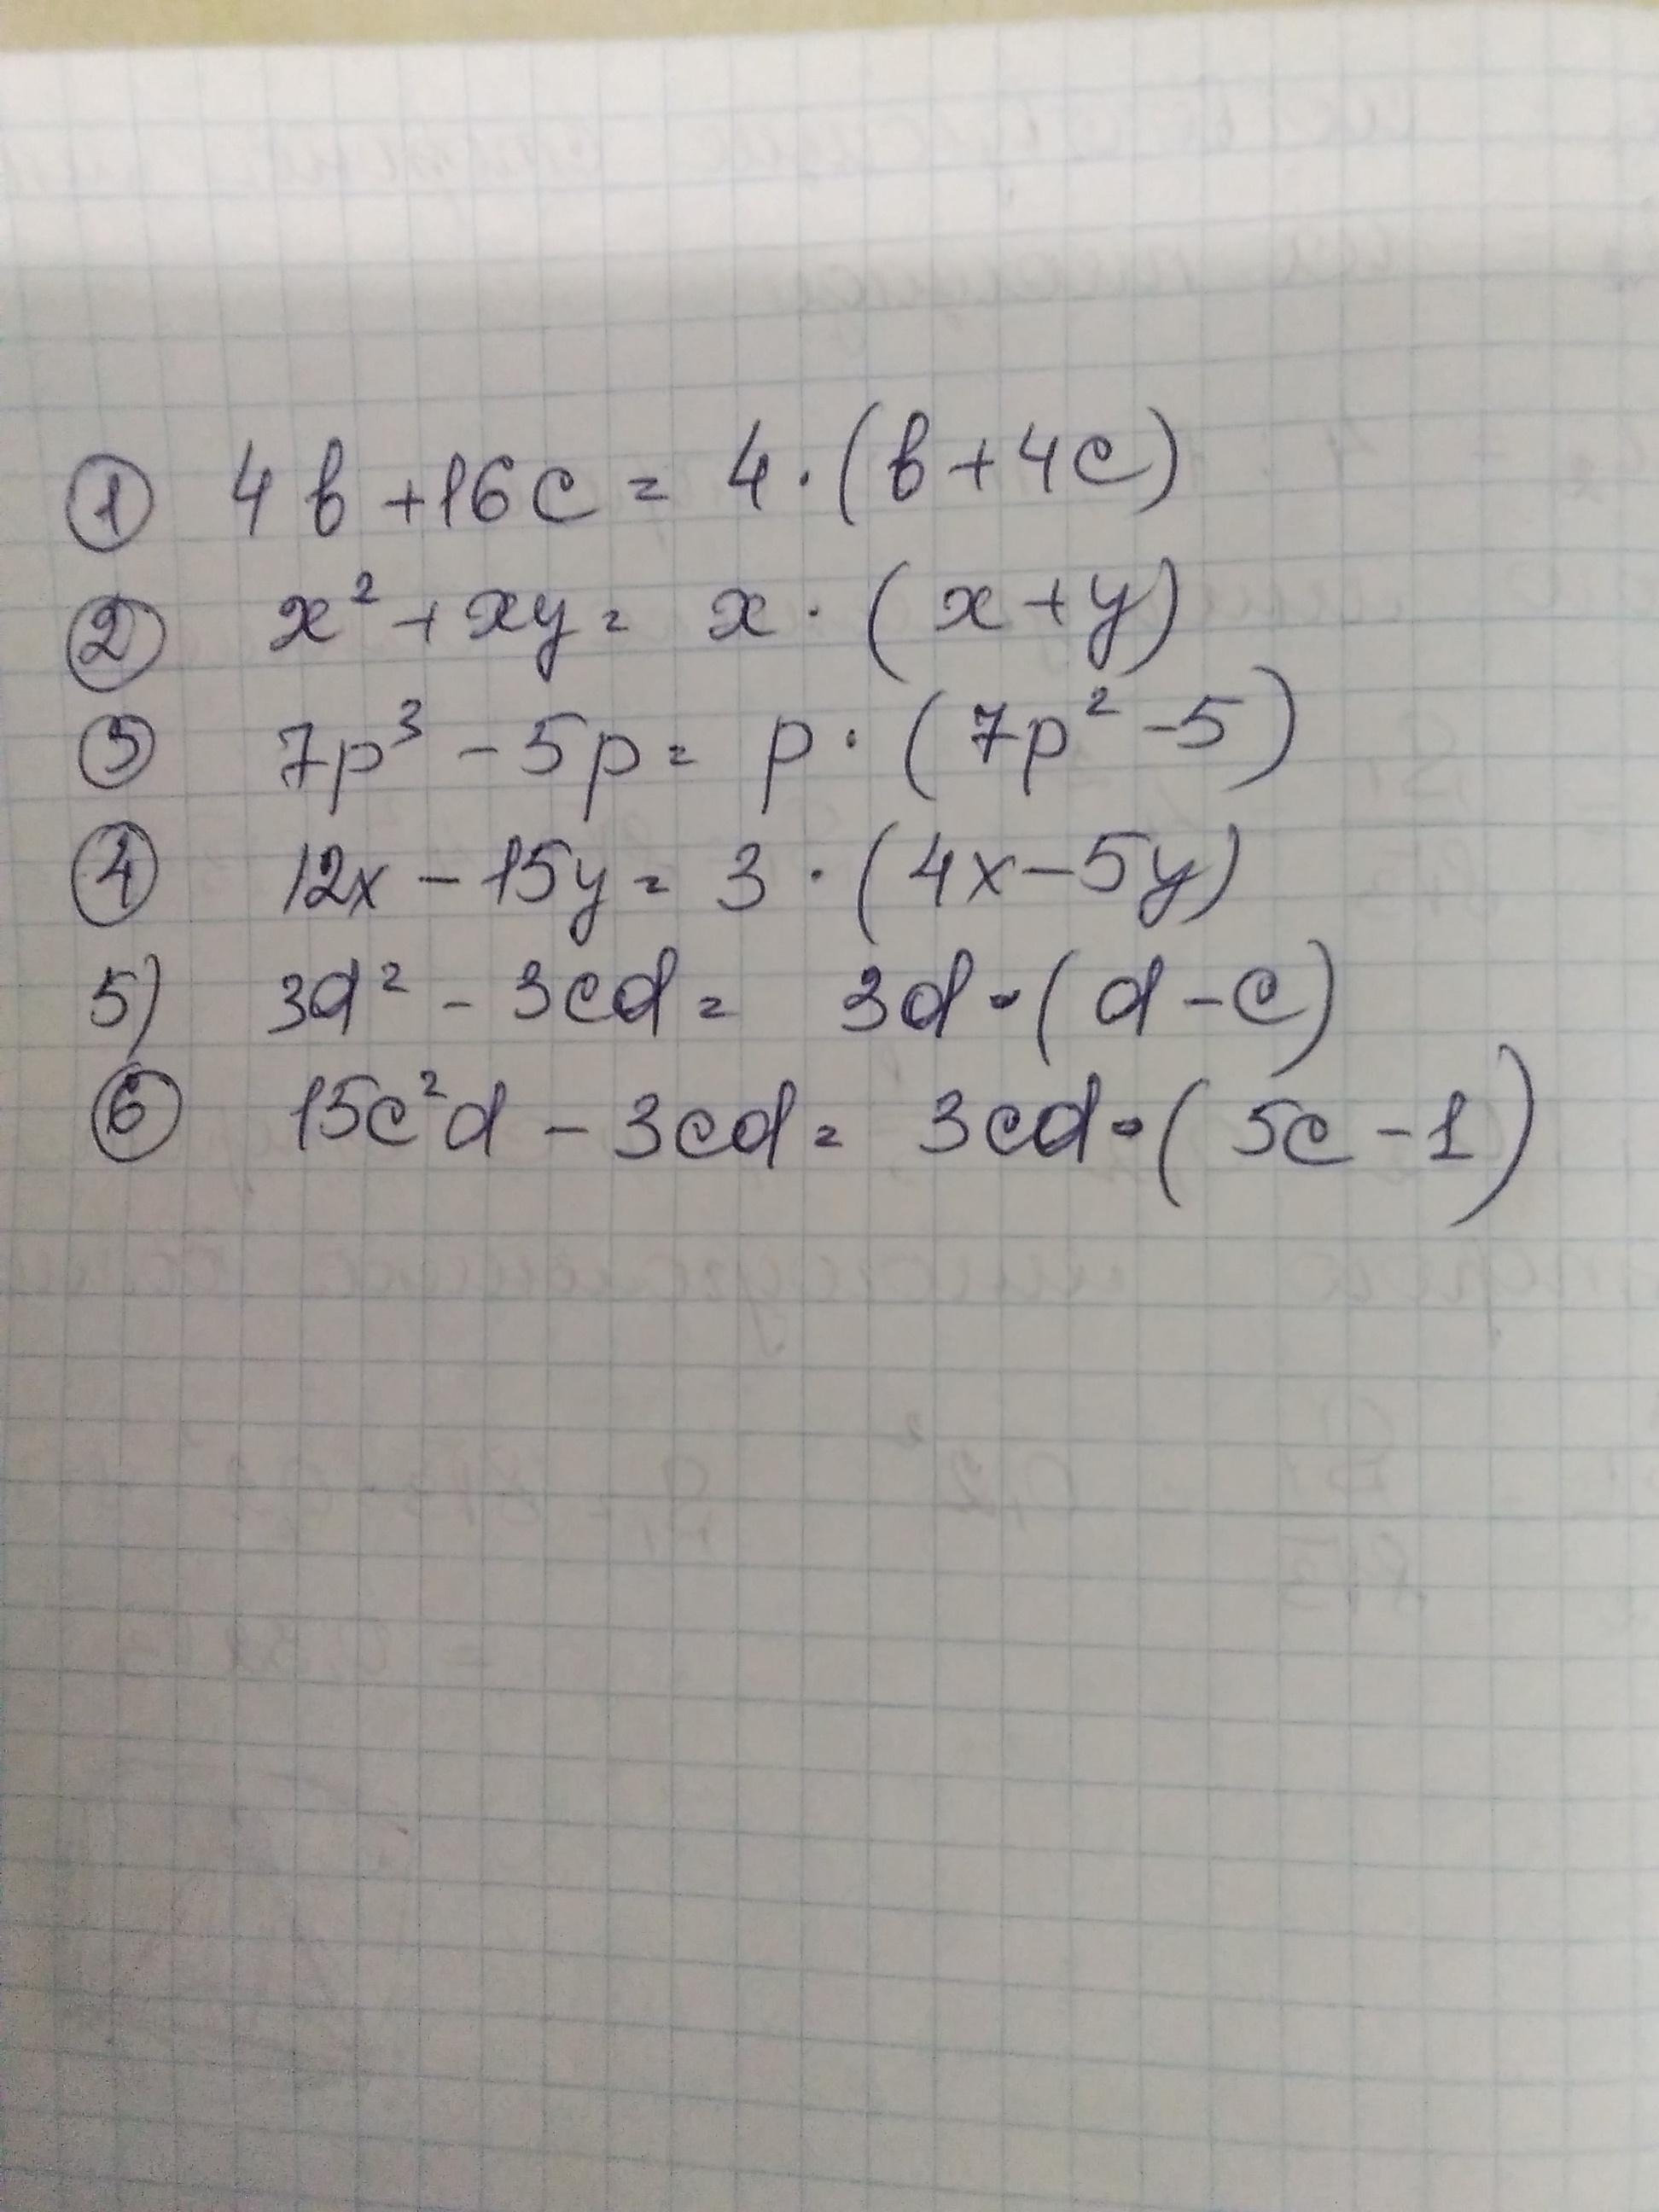 ① 4b + 16c = 4 · (b + 4c)
② x² + xy = x · (x + y)
③ 7p³ - 5p = p · (7p² - 5)
④ 12x - 15y = 3 · (4x - 5y)
5) 3d² - 3cd = 3d · (d - c)
⑥ 15c²d - 3cd = 3cd · (5c - 1)